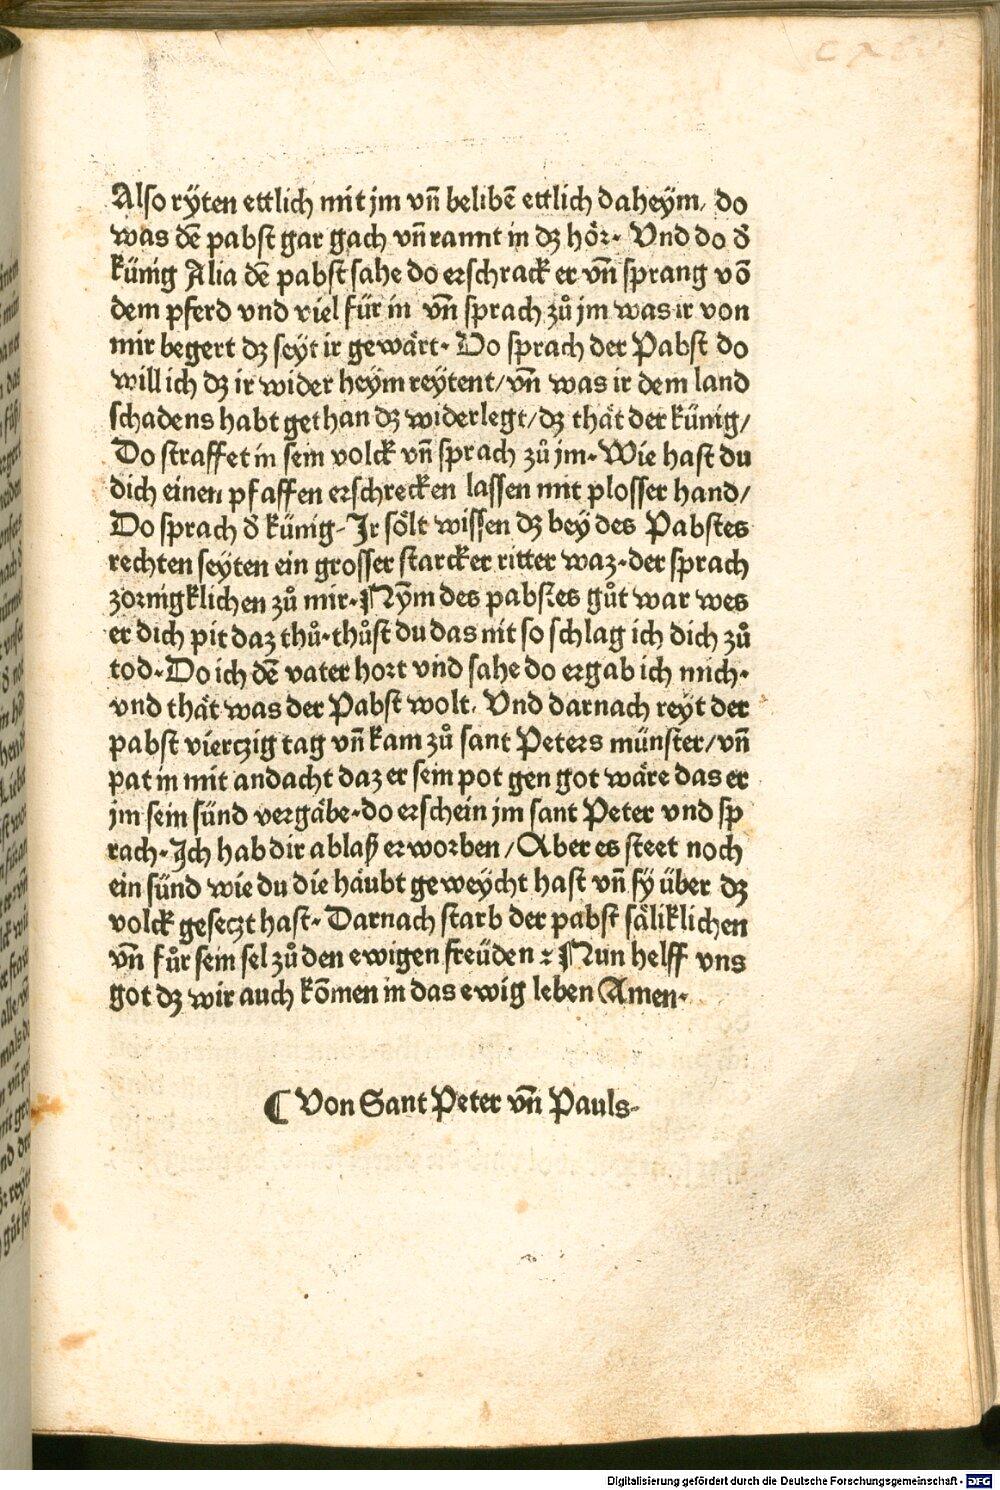 Also rÿten ettlich mit jm vñ belibē ettlich daheÿm, do
was dē pabst gar gach vñ rannt in dz hör. Vnd do d̕
künig Alia dē pabst sahe do erschrack er vñ sprang vō
dem pferd vnd viel für in vñ sprach zů jm was ir von
mir begert dz seÿt ir gewärt. Do sprach der Pabst do
will ich dz ir wider heÿm reÿtent/ vñ was ir dem land
schadens habt gethan dz widerlegt/ dz thät der künig/
Do straffet in sein volck vñ sprach zů jm. Wie hast du
dich einen pfaffen erschrecken lassen mit plosser hand/
Do sprach d̕ künig. Jr sölt wissen dz bey des Pabstes
rechten seÿten ein grosser starcker ritter waz. der sprach
zornigklichen zů mir. Nÿm des pabstes gůt war wes
er dich pit daz thů. thůst du das nit so schlag ich dich zů
tod. Do ich dē vater hort vnd sahe do ergab ich mich.
vnd thät was der Pabst wolt. Vnd darnach reÿt der
pabst vierczig tag vñ kam zů sant Peters münster/ vñ
pat in mit andacht daz er sein pot gen got wäre das er
jm sein sünd vergäbe. do erschein jm sant Peter vnd sp
rach. Jch hab dir ablaß erworben/ Aber es steet noch
ein sünd wie du die häubt geweÿcht hast vñ sÿ über dz
volck geseczt hast. Darnach starb der pabst säliklichen
vñ fůr sein sel zů den ewigen freüden : Nun helff vns
got dz wir auch kōmen in das ewig leben Amen.
¶ Von Sant Peter vñ Pauls.
Digitalisierung gefördert durch die Deutsche Forschungsgemeinschaft - DFG